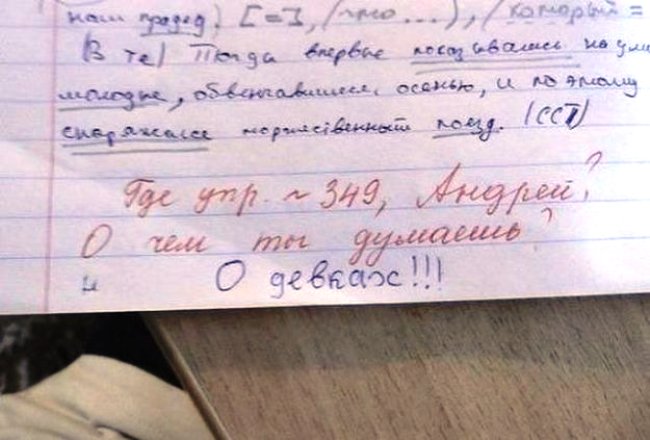 наш прадед, [–=], (что...), (который =
(В те) Тогда впервые показывались на ули
молодые, обвенчавшиеся осенью, и поэтому
снаряжался торжественный поезд. (ССП)
Где упр. ~ 349, Андрей?
О чем ты думаешь?
О девках!!!